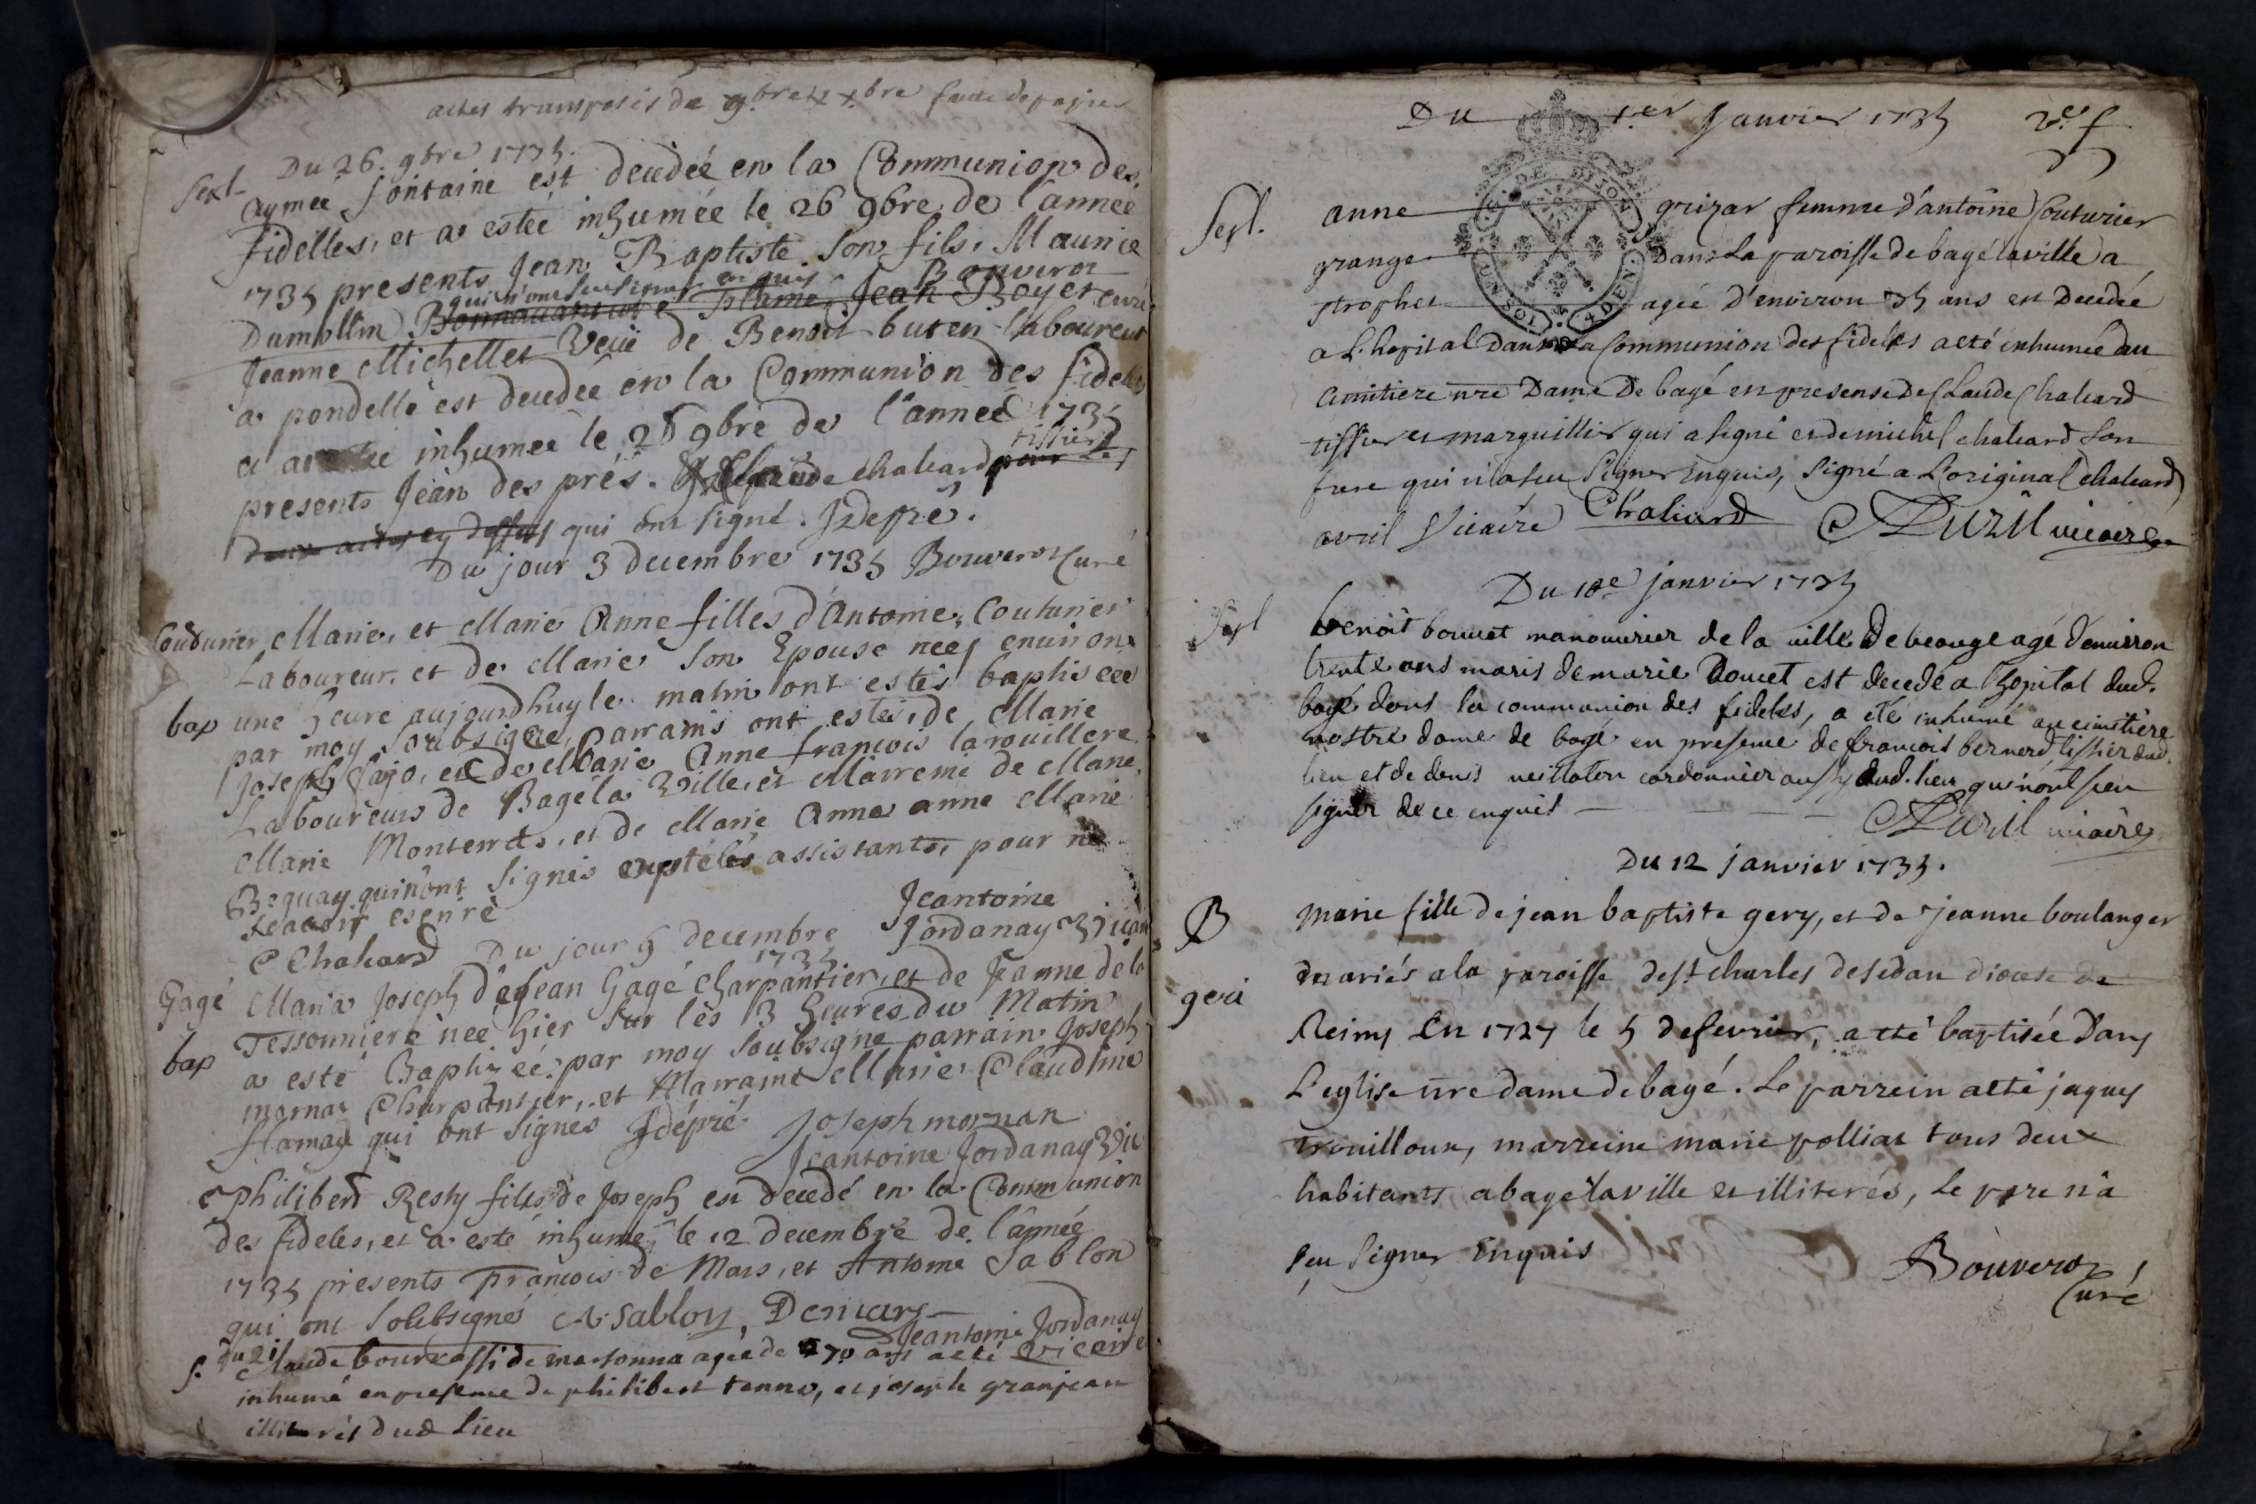 actes transposés de 9.bre et x.bre faute de papier
Du 26. 9bre 1735.
Sepl
Aymeé fontaine est decedeé en la Communion des
fidelles, et a esteé inhumeé le 26 9bre de l'anneé
1735 presents Jean Baptiste son fils. Maurice
qui n'ont sceu signer enquis Bouverot
Dumollin Jean Boyer curé
Jeanne Michellet veüe de Benoit buten laboureur
a pondelle est decedeé en la Communion des fidelles
et a inhumeé le 28 9bre de l'anneé 1735
tissier
presents Jean des prés. Claude chaliard pour les
deux actes cy dessus qui ont signé. J Depré.
Du jour 3 decembre 1735 Bouverot Curé
Couturier
Marie, et Marie Anne filles d'Antoine, Couturier
Laboureur, et de Marie son Epouse neeś environ
bap
une heure aujourdhuy le matin ont estés baptiseé
par moy soubsigné, parrains ont estés, de Marie
Joseph fajo, et de Marie Anne francois larouillere
Laboureurs de Bagé la Ville, et Mareme de Marie
Marie Monterret, et de Marie Anne anne Marie
Beguay qui n'ont signés assistants, pour ne
C Chaliard
Jeantoine
Jordanay Vicair
Du jour 9 decembre
1735
Gagé
Maria Joseph de Jean Gagé Charpantier, et de Jeanne de la
Tessonniere neé hier sur les 3 heures du Matin
bap
a esté Baptizeé par moy soubsigné parrain Joseph
mornai Charpantier, et Marraine Marie Claudine
flamax qui ont signés J dépré Joseph mornan
Jeantoine Jordanay Vic
Philibert Resty fills de Joseph est decedé en la Communion
des fideles, et a esté inhumé, le 12 decembre de l'année
1735 présents francois de Mars, et Antoine Sablon
qui ont soubsignés A Sablon, Demars
Jeantoine Jordanay
Vicaire
f.
du 21
Claude bourcassi de marsonna agée de 70 ans a eté
inhumé en presence de philibert tenno, et joseph granjean
illiterés dud lieu
Du 1.er Janvier 1735
2.e f
Sepl.
anne grizar femme d'antoine Couturier
granger Dans la paroisse de bagé la ville a
strophes ageé D'environ 35 ans est Decedeé
a L'hopital Dans La Communion des fideles a eté inhumée au
cimitiere nre Dame De bagé en presense De Claude Chaliard
tissier et marguillier qui a signé et de michel chaliard son
frere qui n'a sceu signer enquis, signé a L'original chaliard
avril Vicaire Chaliard Avril vicaire
Du 10e janvier 1735
Sepl
benoit bouvet manouvrier de la ville De beauge agé d'environ
trente ans maris de marie Doucet est decedé a l'hopital dud.
bagé dans la communion des fideles, a eté inhumé au cimitière
nostre dame de bagé en presence de francois bernard tissier dud.
lieu et de denis cordonnier aussy dud. lieu qui n'ont sceu
signer de ce enquis Avril vicaire
Du 12 janvier 1735.
B
geri
marie fille de jean baptiste gery, et de jeanne boulanger
mariés a la paroisse de st charles de sedan diocese de
Reims En 1727 le 5 de fevrier, a eté baptisée Dans
L'eglise nre dame de bagé. Le parrein a eté jaques
trouilloux, marreine marie polliat tous deux
habitants a bagé la ville et illiterés, Le pere n'a
sceu signer Enquis
Bouverot
Curé